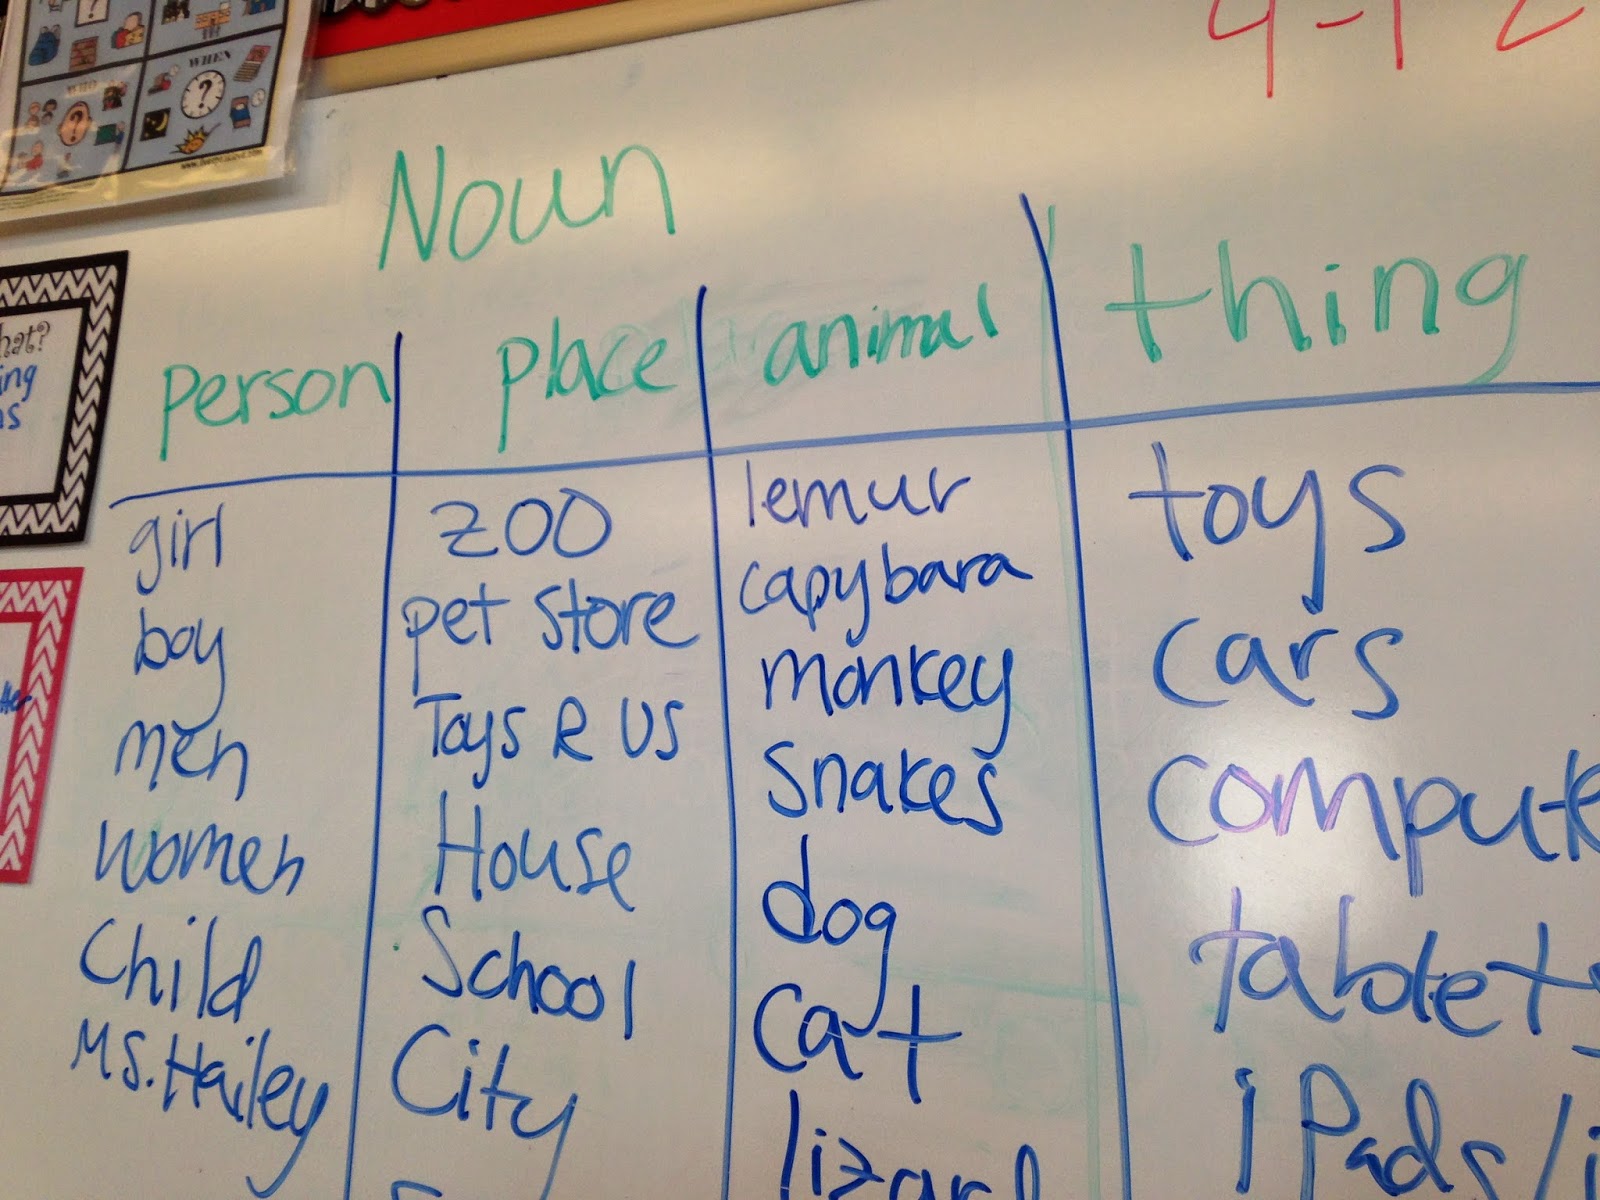 4-1
WHEN
WHO
Noun
hat?
ing
person place animal thing
girl zoo lemur toys
boy pet store capybara cars
men Toys R US monkey compute
women House snakes tablets
Child School dog iPads/i
Ms. Hailey City cat
lizard